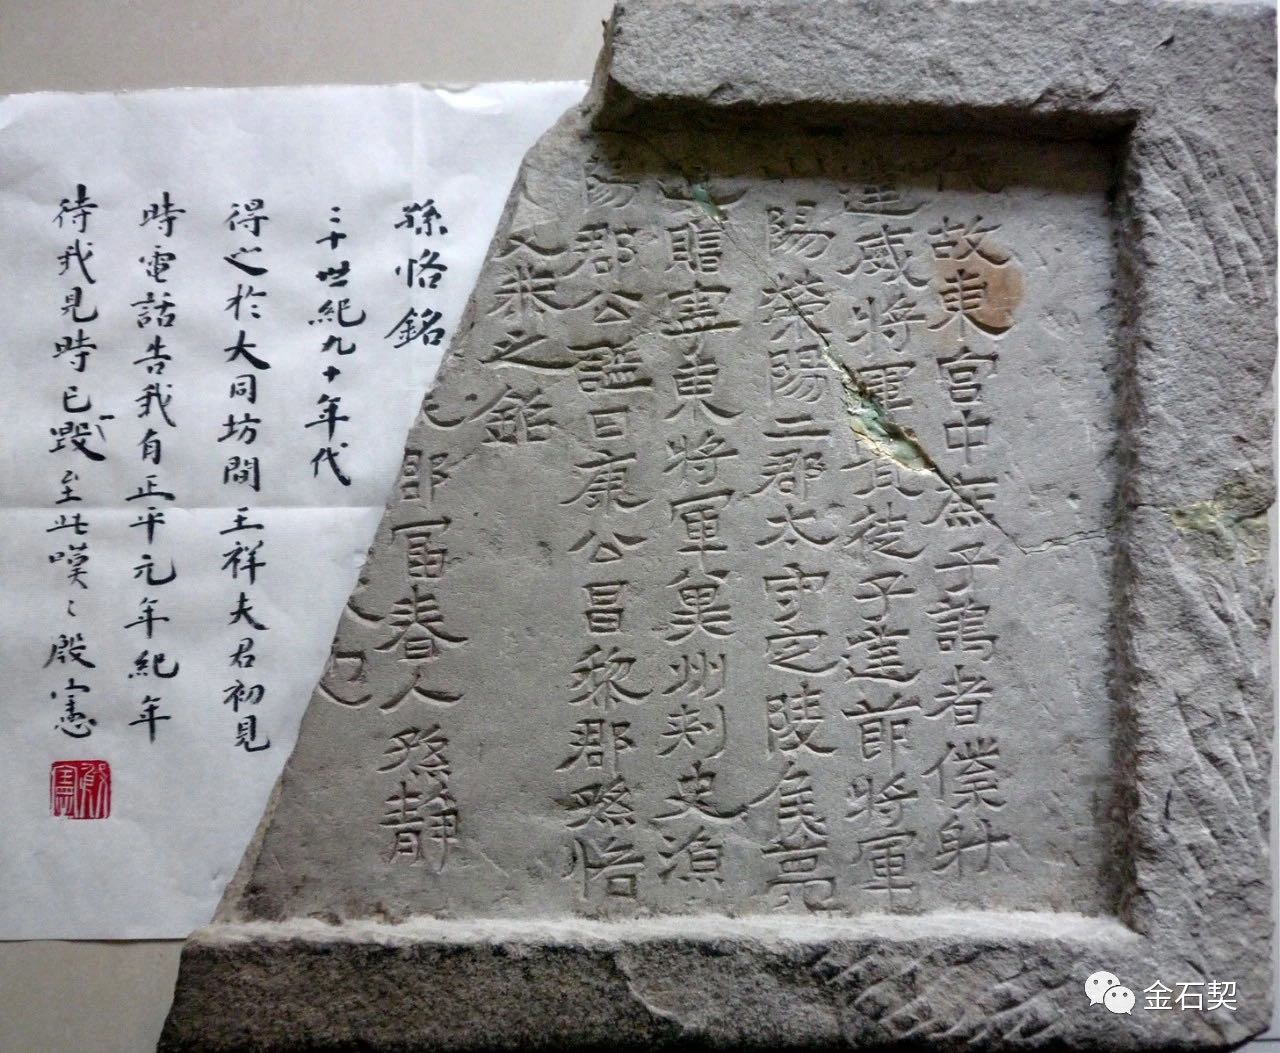 代故東宮中庶子謁者僕射
建威將軍賁徒子建節將軍
陽滎陽二郡太守定陵侯薨
贈寧東將軍冀州刺史漁
陽郡公謚曰康公昌黎郡孫恪
父恭之銘
郡富春人孫靜
也
孫恪銘
二十世紀九十年代
得之於大同坊間王祥夫君初見
時電話告我有正平元年紀年
待我見時已毀至此嘆々殷憲
殷憲
金石契